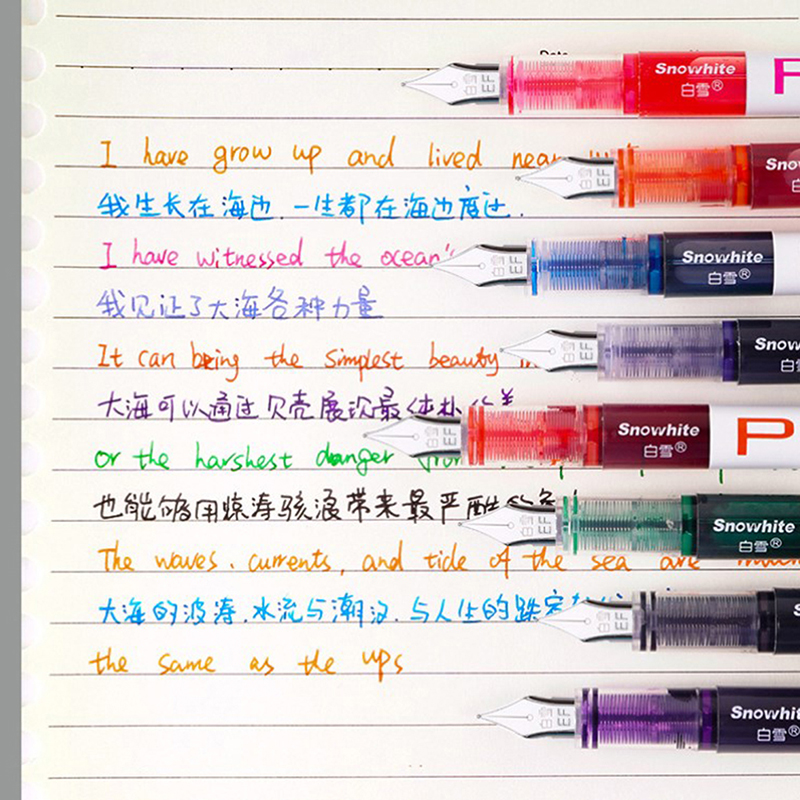 Snowhite
白雪®
EF
I have grow up and lived near
我生长在海边.一生都在海边度过.
Snowhite
白雪®
EF
I have witnessed the ocean's
我见证了大海各种力量
It can being the simplest beauty
大海可以通过贝壳展况最体朴
Snowhite
白雪®
P
EF
or the harshest danger
也能够用惊涛骇浪带来最严酷的
Snowhite
白雪®
EF
The waves. currents, and tide of the sea are
大海的波涛.水流与潮汐.与人生的跌宕
the same as the ups
Snowhite
白雪®
EF